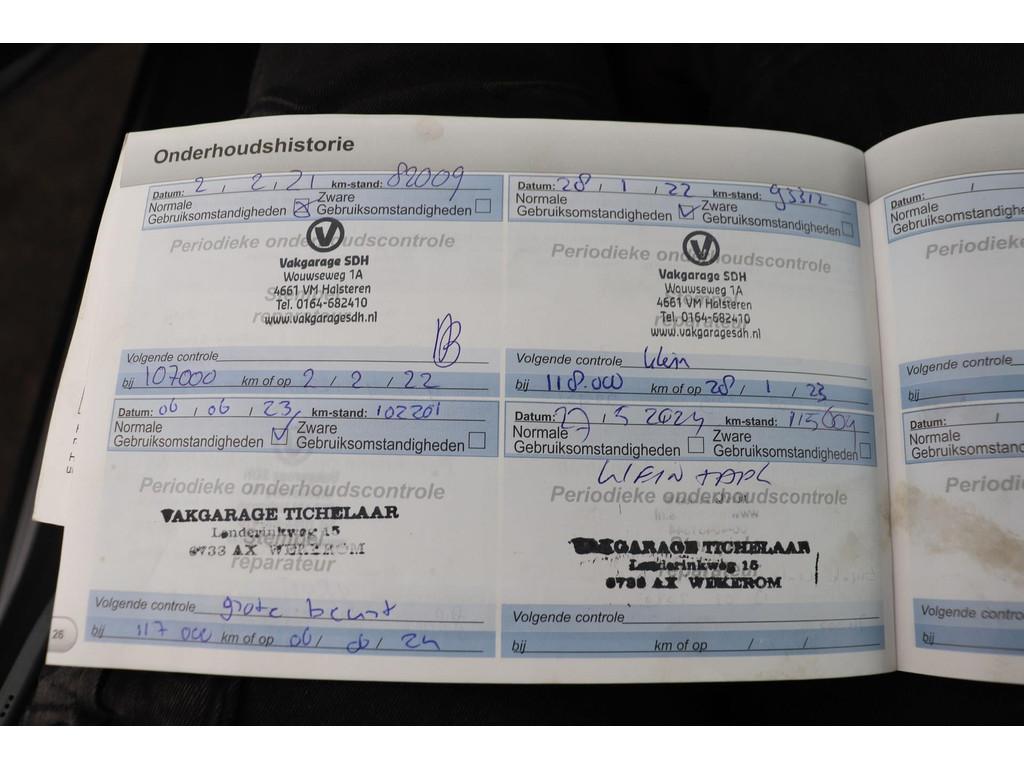 Onderhoudshistorie
Datum: 2 , 2, 21 km-stand: 82009
Normale Gebruiksomstandigheden Zware Gebruiksomstandigheden
Periodieke onderhoudscontrole
V
Vakgarage SDH
Wouwseweg 1A
4661 VM Halsteren
Tel. 0164-682410
www.vakgaragesdh.nl
Stempel
reparateur
Volgende controle
bij 107000 km of op 2 / 2 / 22
Datum: 28 , 1 , 22 km-stand: 95312
Normale Gebruiksomstandigheden Zware Gebruiksomstandigheden
Periodieke onderhoudscontrole
V
Vakgarage SDH
Wouwseweg 1A
4661 VM Halsteren
Tel. 0164-682410
www.vakgaragesdh.nl
reparateur
Volgende controle klein
bij 118.000 km of op 28 / 1 / 23
Datum: 06 , 06 , 23 km-stand: 102201
Normale Gebruiksomstandigheden Zware Gebruiksomstandigheden
Periodieke onderhoudscontrole
VAKGARAGE TICHELAAR
Lunderinkweg 15
6733 AX WEKEROM
Stempel
reparateur
Volgende controle grote beurt
bij 117 000 km of op 06/ 06/ 24
Datum: 27 , 5 2024 km-stand: 115009
Normale Gebruiksomstandigheden Zware Gebruiksomstandigheden
Periodieke onderhoudscontrole
VAKGARAGE TICHELAAR
Lunderinkweg 15
6733 AX WEKEROM
Volgende controle
bij km of op / /
26
Datum: /
Normale
Gebruiksomstandighe
Periodieke
Volgende controle
bij
Datum: /
Normale
Gebruiksomstandig
Periodi
Volgende contro
bij